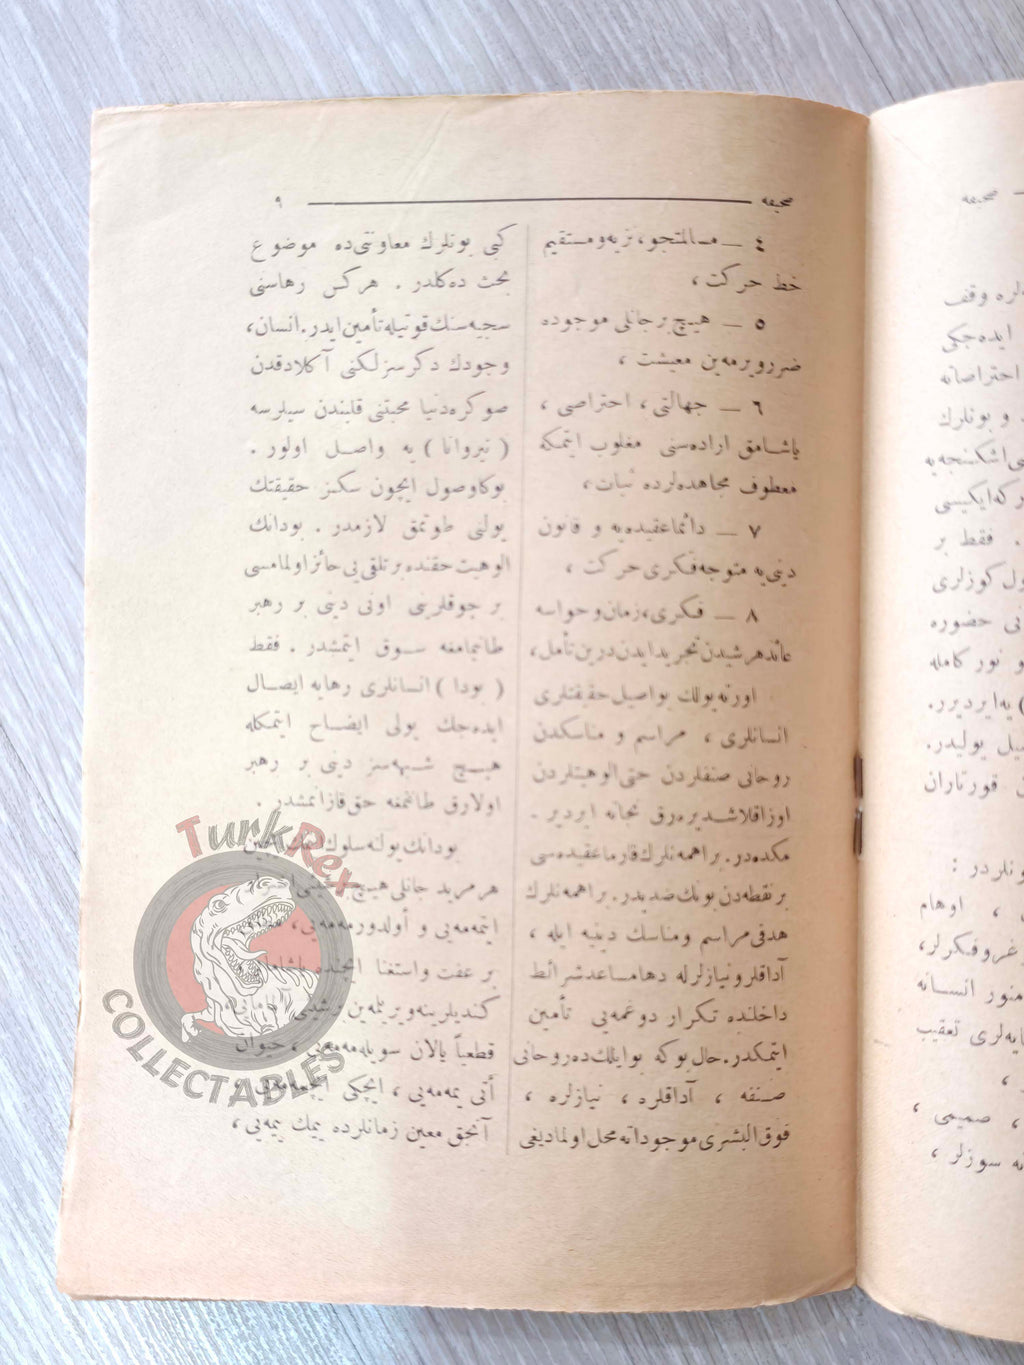 صحیفه ۹
٤ — مسالمتجو، نزیه و مستقیم
خط حرکت،
٥ — هیچ بر جانلی موجوده
ضرر ویرمه‌ین معیشت،
٦ — جهالتی، احتراصی،
یاشامق اراده‌سنی مغلوب ایتمکه
معطوف مجاهده‌لرده ثبات،
۷ — دائما عقیده‌یه و قانون
دینی‌یه متوجه فکری حرکت،
۸ — فکری، زمان و حواسه
عائد هر شیدن تجرید ایدن درین تأمل،
اورته یولك بو اصیل حقیقتلری
انسانلری، مراسم و مناسکدن
روحانی صنفلردن حتی الوهیتلردن
اوزاقلاشدیره‌رق نجاته ایردیر.
مکده‌در. براهمه‌نك قارما عقیده‌سی
بر نقطه‌دن بونك ضدیدر. براهمه‌نلرك
هدفی مراسم و مناسك دینیه ایله،
آداقلر و نیازلرله دها مساعد شرائط
داخلنده تکرار دوغمه‌یی تأمین
ایتمکدر. حال بو که بو ایلك ده روحانی
صنفه، آداقلره، نیازلره،
فوق البشری موجوداته محل اولمادیغی
کبی بونلرك معاونتی ده موضوع
بحث ده کلدر. هرکس رهاسنی
سجیه‌سنك قوتیله تأمین ایدر. انسان،
وجودك دکرسزلکنی آکلادقدن
صوکره دنیا محبتنی قلبندن سیلرسه
(نیروانا) یه واصل اولور.
بوکا وصول ایچون سکز حقیقتك
یولنی طوتمق لازمدر. بودانك
الوهیت حقنده بر تلقی‌یی حائز اولمامسی
بر چوقلرینی اونی دینی بر رهبر
طانیمامغه سوق ایتمشدر. فقط
(بودا) انسانلری رهایه ایصال
ایده‌جك یولی ایضاح ایتمکله
هیچ شبهه‌سز دینی بر رهبر
اولارق طانمغه حق قازانمشدر.
بودانك یولنه سلوك
هر مرید جانلی هیچ
ایتمه‌مه‌یی و أولدورمه‌مه‌یی،
بر عفت و استغنا ایچنده
کندیلرینه ویریلمه‌ین بر شیئی
قطعیاً یالان سویله‌مه‌مه‌یی، حیوان
أتی یمه‌مه‌یی، ایچکی ایچمه‌مه‌یی،
آنجق معین زمانلرده یمك یمه‌یی،
صحیفه
لره وقف
ایده‌جکی
احتراصاته
و بونلرك
اشکنجه‌یه
که ایکیسی
. فقط بر
ول کوزلری
نی حضوره
و نور کامله
) یه ایردیرر.
یل یولیدر.
قورتاران
ونلردر:
، اوهام
منور انسانه
یه‌لری تعقیب
، صمیمی،
سوزلر،
TurkRex
COLLECTABLES